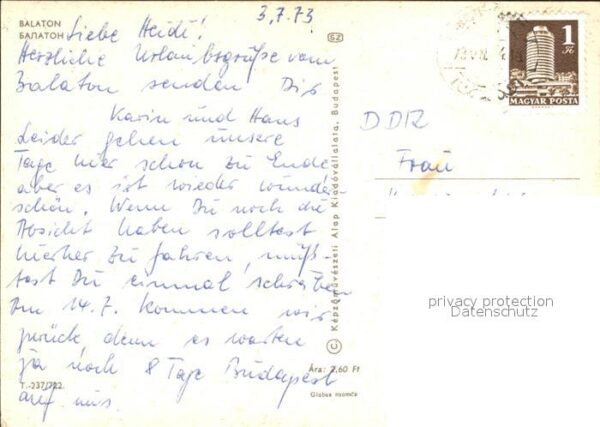 BALATON
БАЛАТОН
3.7.73
Liebe Heidi!
Herzliche Urlaubsgrüße vom
Balaton senden Dir
Karin und Hans
Leider gehen unsere
Tage hier schon zu Ende
aber es ist wieder wunder
schön. Wenn Du noch die
Absicht haben solltest
hierher zu fahren, müß-
test Du einmal schreiben
Am 14.7. kommen wir
zurück, denn es warten
ja noch 8 Tage Budapest
auf uns.
T.-237/722
SZ
Képzőművészeti Alap Kiadóvállalata, Budapest
Ára: 2,60 Ft
Globus nyomda
1 Ft
MAGYAR POSTA
DDR
Frau
privacy protection
Datenschutz